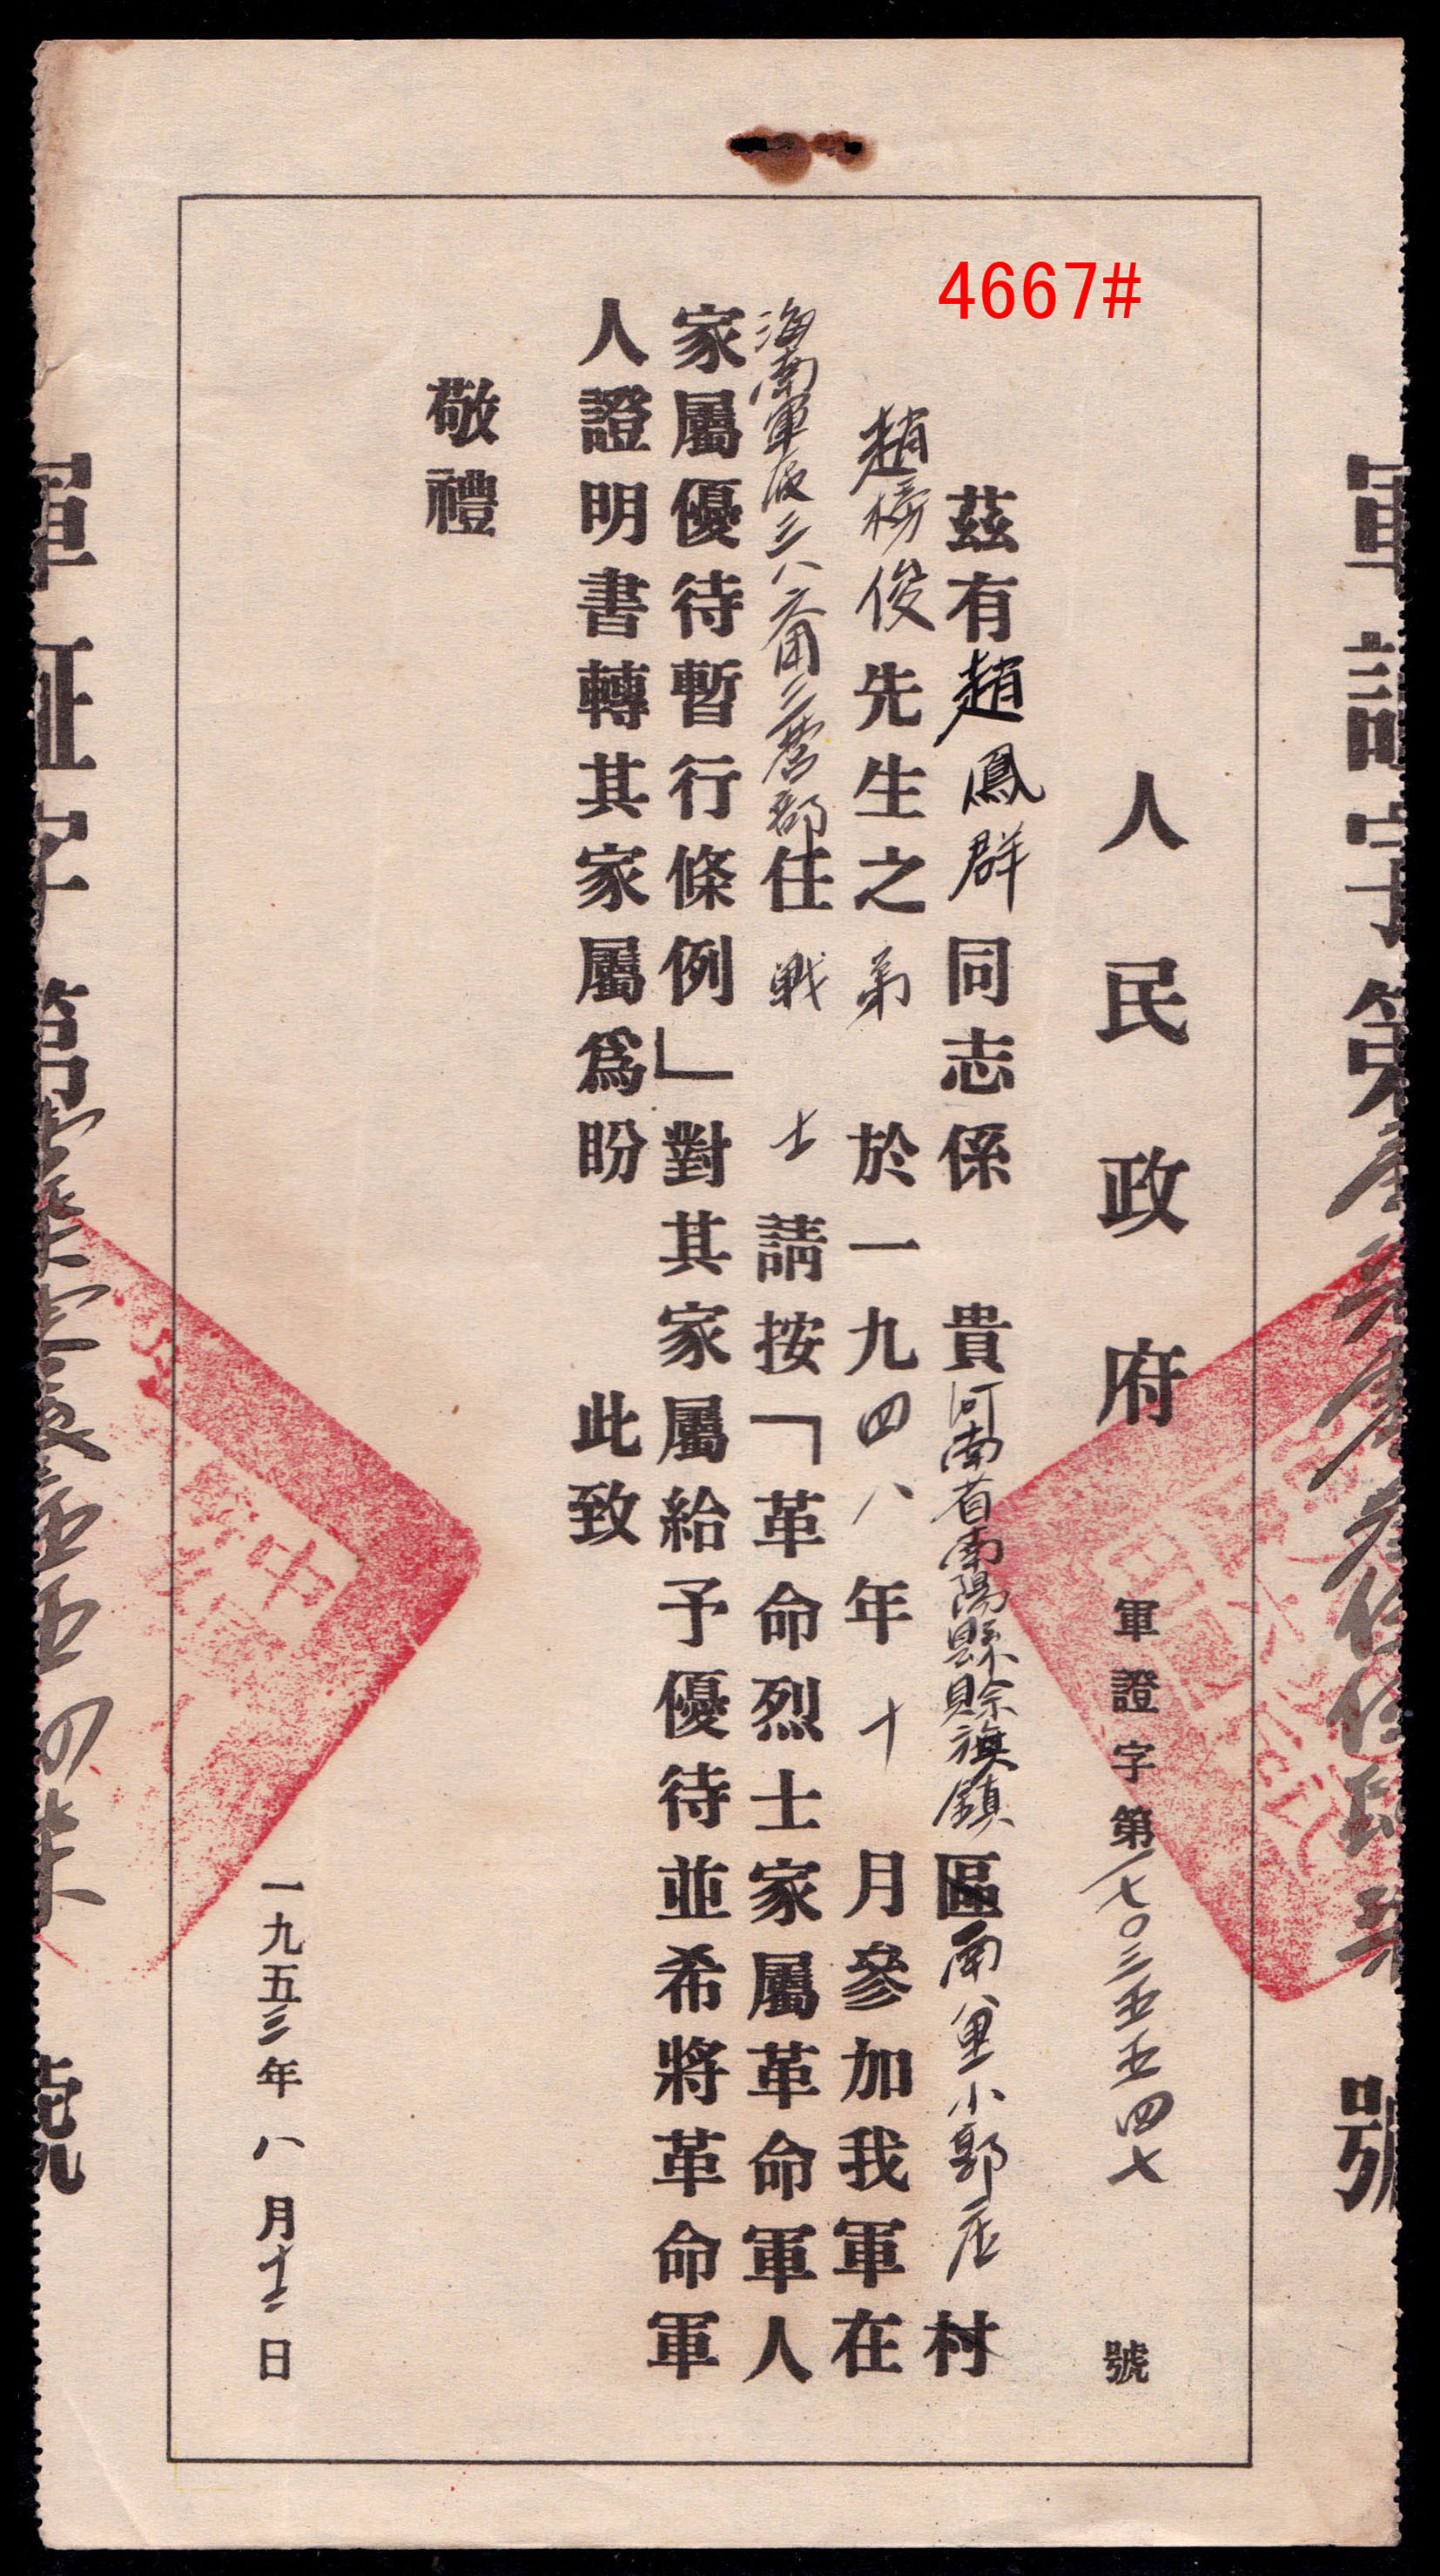 4667#
軍證字第 號
人民政府 軍證字第一七〇三五五四七號
茲有趙鳳群同志係 貴河南省南陽縣賒旗鎮區南里小郭庄村
趙榜俊先生之弟 於一九四八年十月參加我軍在
海南軍區三八六團三營部任戰士請按「革命烈士家屬革命軍人
家屬優待暫行條例」對其家屬給予優待並希將革命軍
人證明書轉其家屬爲盼 此致
敬禮
一九五三年八月十二日
軍証字第 號